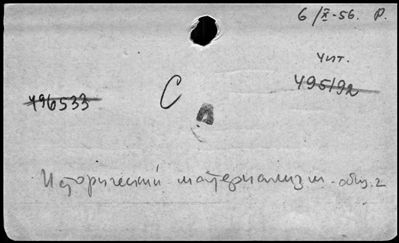 6/X-56. Р.
Чит.
495192
496533
С
Исторический материализм - общ. 2